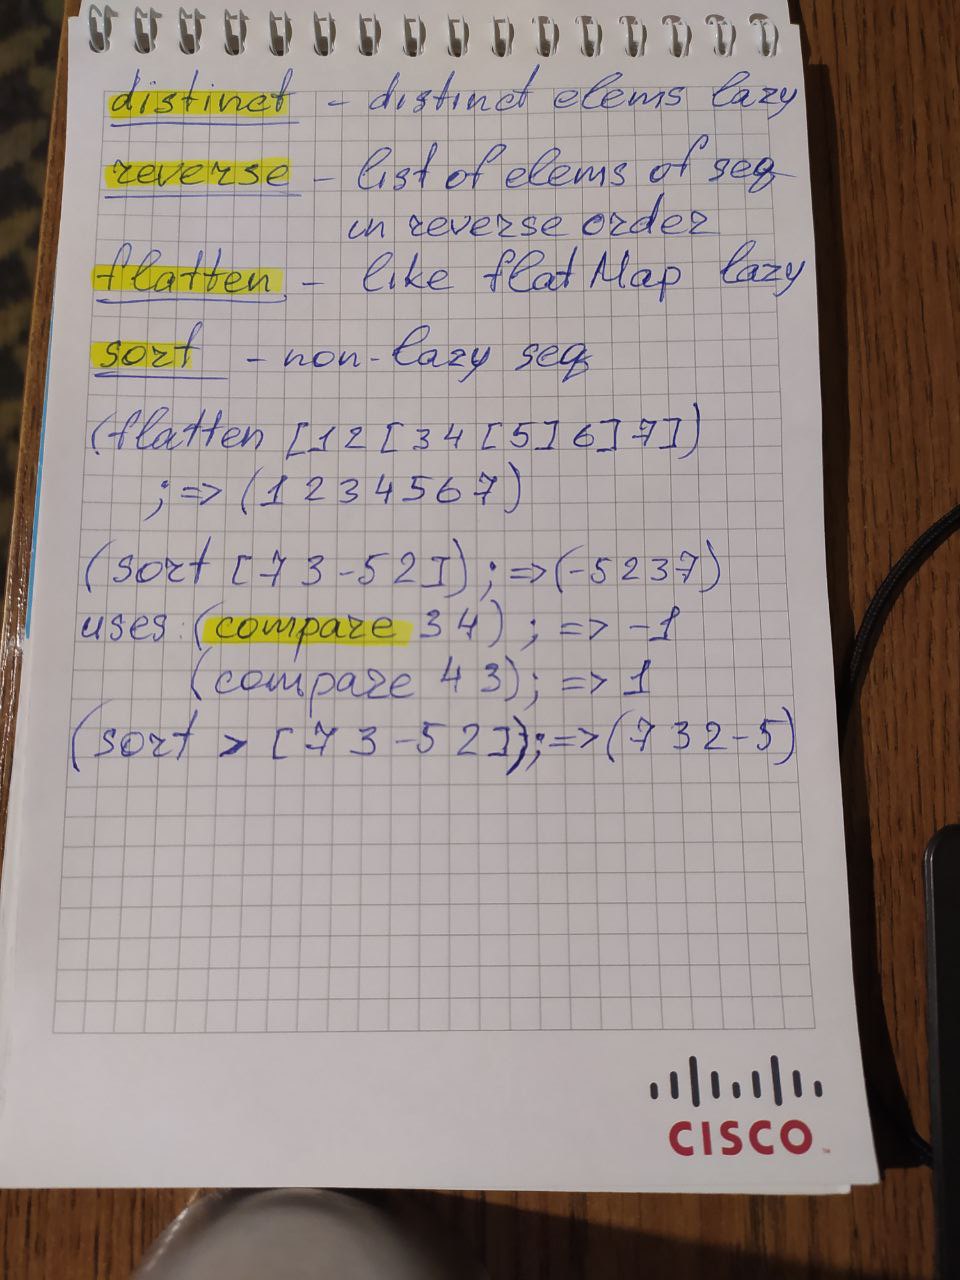 distinct - distinct elems lazy
reverse - list of elems of seq
in reverse order
flatten - like flatMap lazy
sort - non-lazy seq
(flatten [1 2 [3 4 [5] 6] 7])
;=> (1 2 3 4 5 6 7)
(sort [7 3 -5 2]) ;=> (-5 2 3 7)
uses: (compare 3 4) ; => -1
(compare 4 3) ; => 1
(sort > [7 3 -5 2]) ;=> (7 3 2 -5)
CISCO